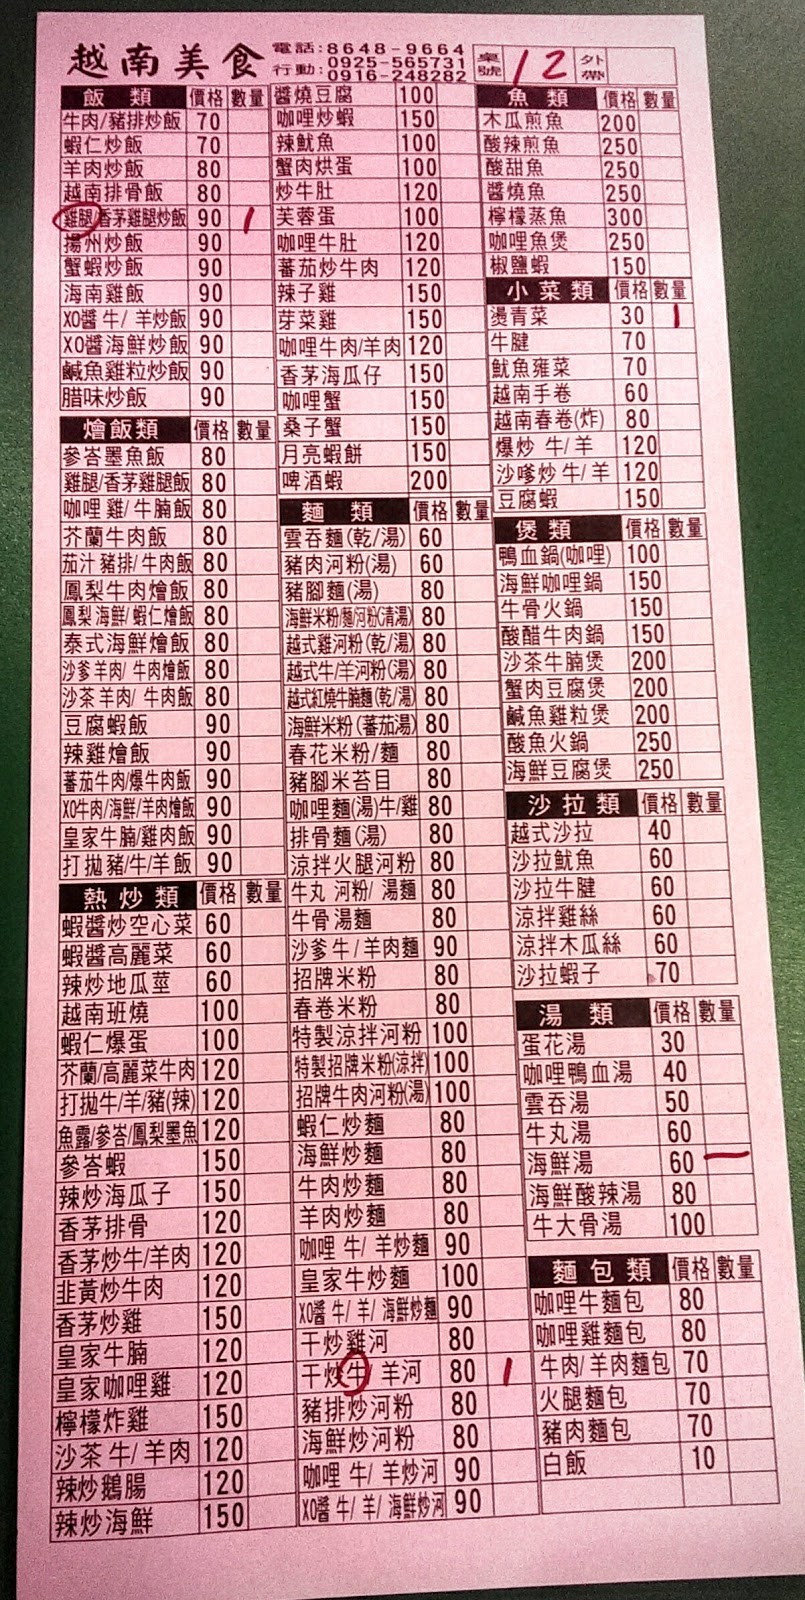 越南美食 電話:8648-9664 行動:0925-565731 0916-248282 桌號 12 外帶
飯類 價格 數量
牛肉/豬排炒飯 70
蝦仁炒飯 70
羊肉炒飯 80
越南排骨飯 80
雞腿/香茅雞腿炒飯 90 1
揚州炒飯 90
蟹蝦炒飯 90
海南雞飯 90
XO醬 牛/ 羊炒飯 90
XO醬海鮮炒飯 90
鹹魚雞粒炒飯 90
腊味炒飯 90
燴飯類 價格 數量
參峇墨魚飯 80
雞腿/香茅雞腿飯 80
咖哩 雞/ 牛腩飯 80
芥蘭牛肉飯 80
茄汁 豬排/ 牛肉飯 80
鳳梨牛肉燴飯 80
鳳梨 海鮮/ 蝦仁燴飯 80
泰式海鮮燴飯 80
沙爹 羊肉/ 牛肉燴飯 80
沙茶 羊肉/ 牛肉飯 80
豆腐蝦飯 90
辣雞燴飯 90
蕃茄牛肉/爆牛肉飯 90
XO牛肉/海鮮/羊肉燴飯 90
皇家牛腩/雞肉飯 90
打拋豬/牛/羊飯 90
熱炒類 價格 數量
蝦醬炒空心菜 60
蝦醬高麗菜 60
辣炒地瓜莖 60
越南班燒 100
蝦仁爆蛋 100
芥蘭/高麗菜牛肉 120
打拋牛/羊/豬(辣) 120
魚露/參峇/鳳梨墨魚 120
參峇蝦 150
辣炒海瓜子 150
香茅排骨 120
香茅炒牛/羊肉 120
韭黃炒牛肉 120
香茅炒雞 150
皇家牛腩 120
皇家咖哩雞 120
檸檬炸雞 150
沙茶 牛/ 羊肉 120
辣炒鵝腸 120
辣炒海鮮 150
醬燒豆腐 100
咖哩炒蝦 150
辣魷魚 100
蟹肉烘蛋 100
炒牛肚 120
芙蓉蛋 100
咖哩牛肚 120
蕃茄炒牛肉 120
辣子雞 150
芽菜雞 150
咖哩牛肉/羊肉 120
香茅海瓜仔 150
咖哩蟹 150
桑子蟹 150
月亮蝦餅 150
啤酒蝦 200
麵類 價格 數量
雲吞麵(乾/湯) 60
豬肉河粉(湯) 60
豬腳麵(湯) 80
海鮮米粉/麵/河粉(清湯) 80
越式雞河粉(乾/湯) 80
越式牛/羊河粉(湯) 80
越式紅燒牛腩麵(乾/湯) 80
海鮮米粉(蕃茄湯) 80
春花米粉/麵 80
豬腳米苔目 80
咖哩麵(湯)牛/雞 80
排骨麵(湯) 80
涼拌火腿河粉 80
牛丸 河粉/ 湯麵 80
牛骨湯麵 80
沙爹 牛/ 羊肉麵 90
招牌米粉 80
春卷米粉 80
特製涼拌河粉 100
特製招牌米粉(涼拌) 100
招牌牛肉河粉(湯) 100
蝦仁炒麵 80
海鮮炒麵 80
牛肉炒麵 80
羊肉炒麵 80
咖哩 牛/ 羊炒麵 90
皇家牛炒麵 100
XO醬 牛/ 羊/ 海鮮炒麵 90
干炒雞河 80
干炒牛 羊河 80 1
豬排炒河粉 80
海鮮炒河粉 80
咖哩 牛/ 羊炒河 90
XO醬 牛/ 羊/ 海鮮炒河 90
魚類 價格 數量
木瓜煎魚 200
酸辣煎魚 250
酸甜魚 250
醬燒魚 250
檸檬蒸魚 300
咖哩魚煲 250
椒鹽蝦 150
小菜類 價格 數量
燙青菜 30 1
牛腱 70
魷魚雍菜 70
越南手卷 60
越南春卷(炸) 80
爆炒 牛/ 羊 120
沙嗲炒 牛/ 羊 120
豆腐蝦 150
煲類 價格 數量
鴨血鍋(咖哩) 100
海鮮咖哩鍋 150
牛骨火鍋 150
酸醋牛肉鍋 150
沙茶牛腩煲 200
蟹肉豆腐煲 200
鹹魚雞粒煲 200
酸魚火鍋 250
海鮮豆腐煲 250
沙拉類 價格 數量
越式沙拉 40
沙拉魷魚 60
沙拉牛腱 60
涼拌雞絲 60
涼拌木瓜絲 60
沙拉蝦子 70
湯類 價格 數量
蛋花湯 30
咖哩鴨血湯 40
雲吞湯 50
牛丸湯 60
海鮮湯 60 一
海鮮酸辣湯 80
牛大骨湯 100
麵包類 價格 數量
咖哩牛麵包 80
咖哩雞麵包 80
牛肉/ 羊肉麵包 70
火腿麵包 70
豬肉麵包 70
白飯 10